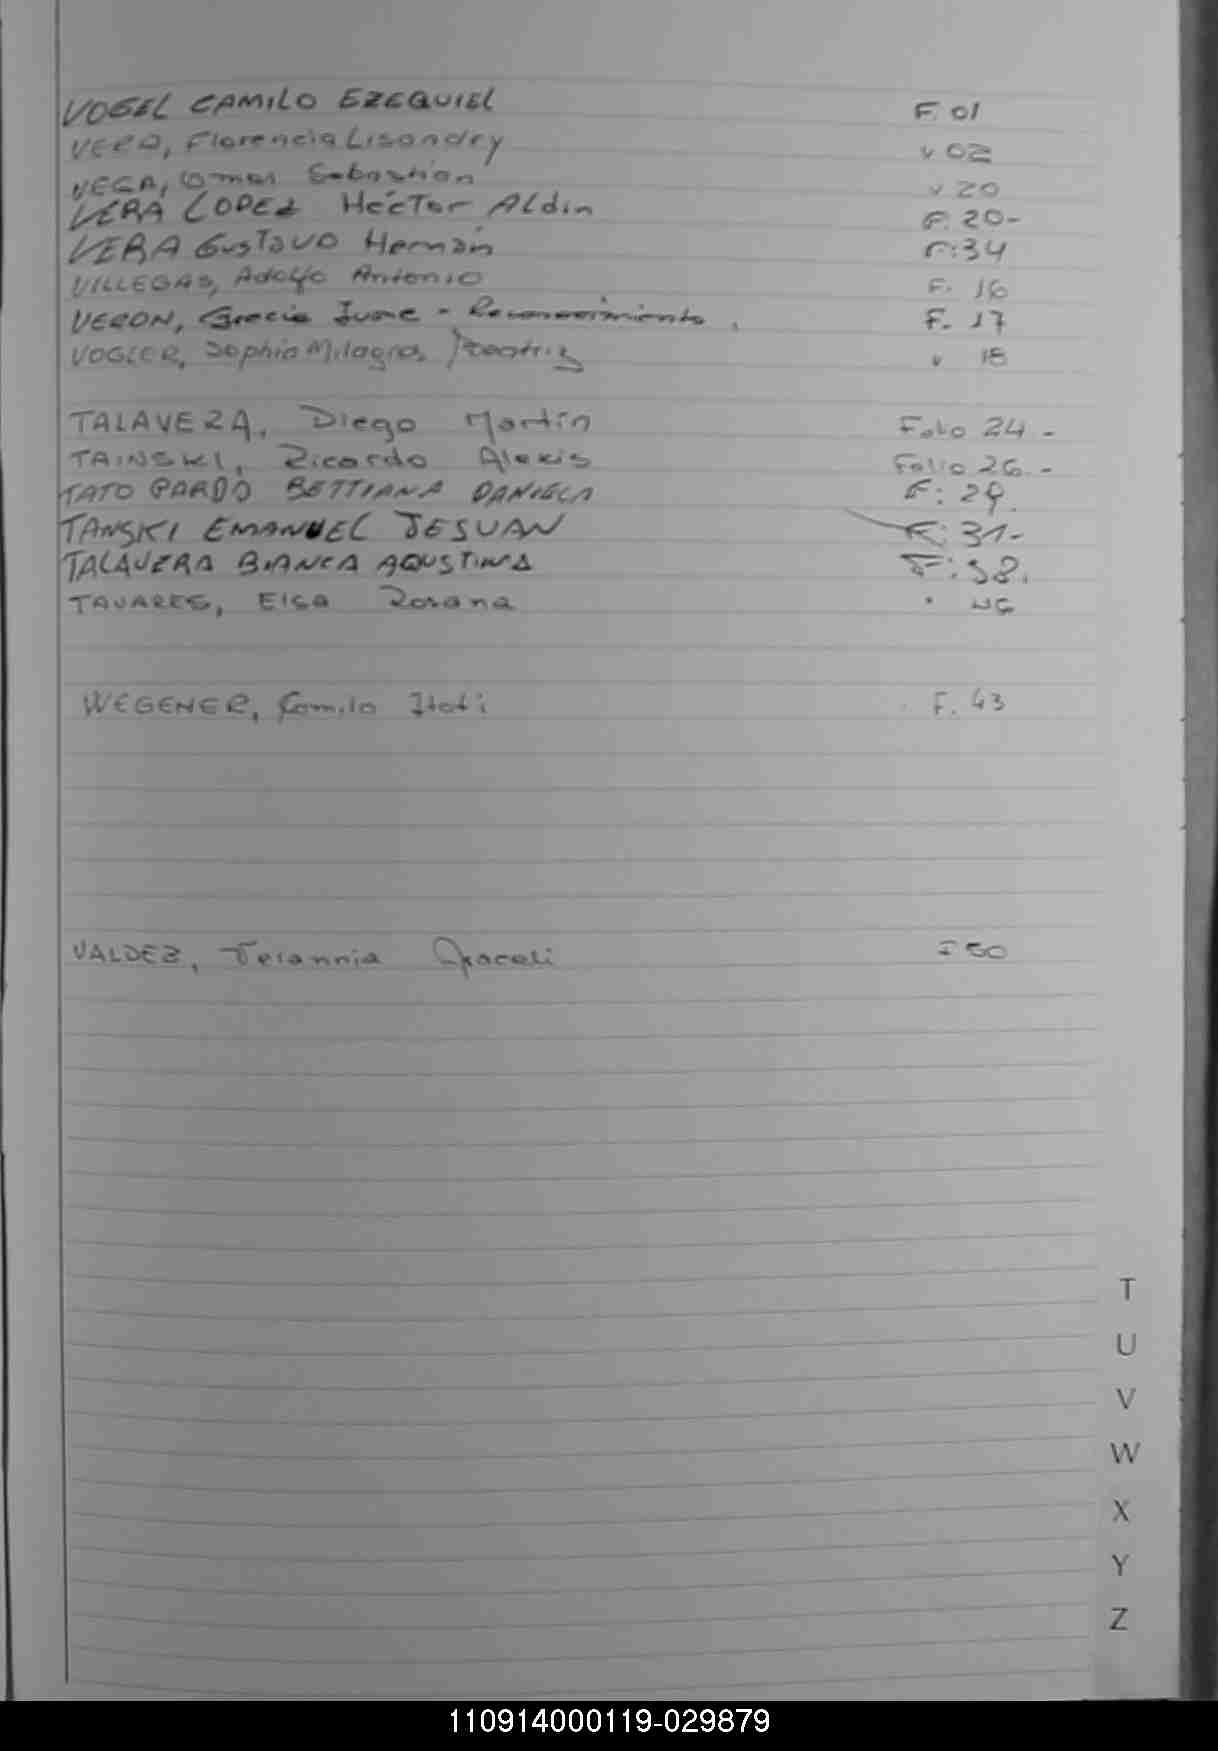 VOGEL CAMILO EZEQUIEL F. 01
VERA, Florencia Lisandry " 02
VEGA, Omar Sebastian " 20
VERA LOPEZ Héctor Aldin F. 20-
VERA GusTavo Hernán F: 34
VILLEGAS, Adolfo Antonio F. 16
VERON, Grecia Ivone - Reconocimiento. F. 17
VOGLER, Sophia Milagros Beatriz " 18
TALAVERA, Diego Martin Folio 24 -
TAINSKI, Ricardo Alexis Folio 26. -
TATO PARDO BETTIANA DANIELA F: 29.
TANSKI EMANUEL JESUAN F: 31-
TALAVERA BIANCA AGUSTINA F: 38.
TAVARES, Elsa Rosana " 46
WEGENER, Camila Itati F. 43
VALDEZ, Araceli F 50
T
U
V
W
X
Y
Z
110914000119-029879